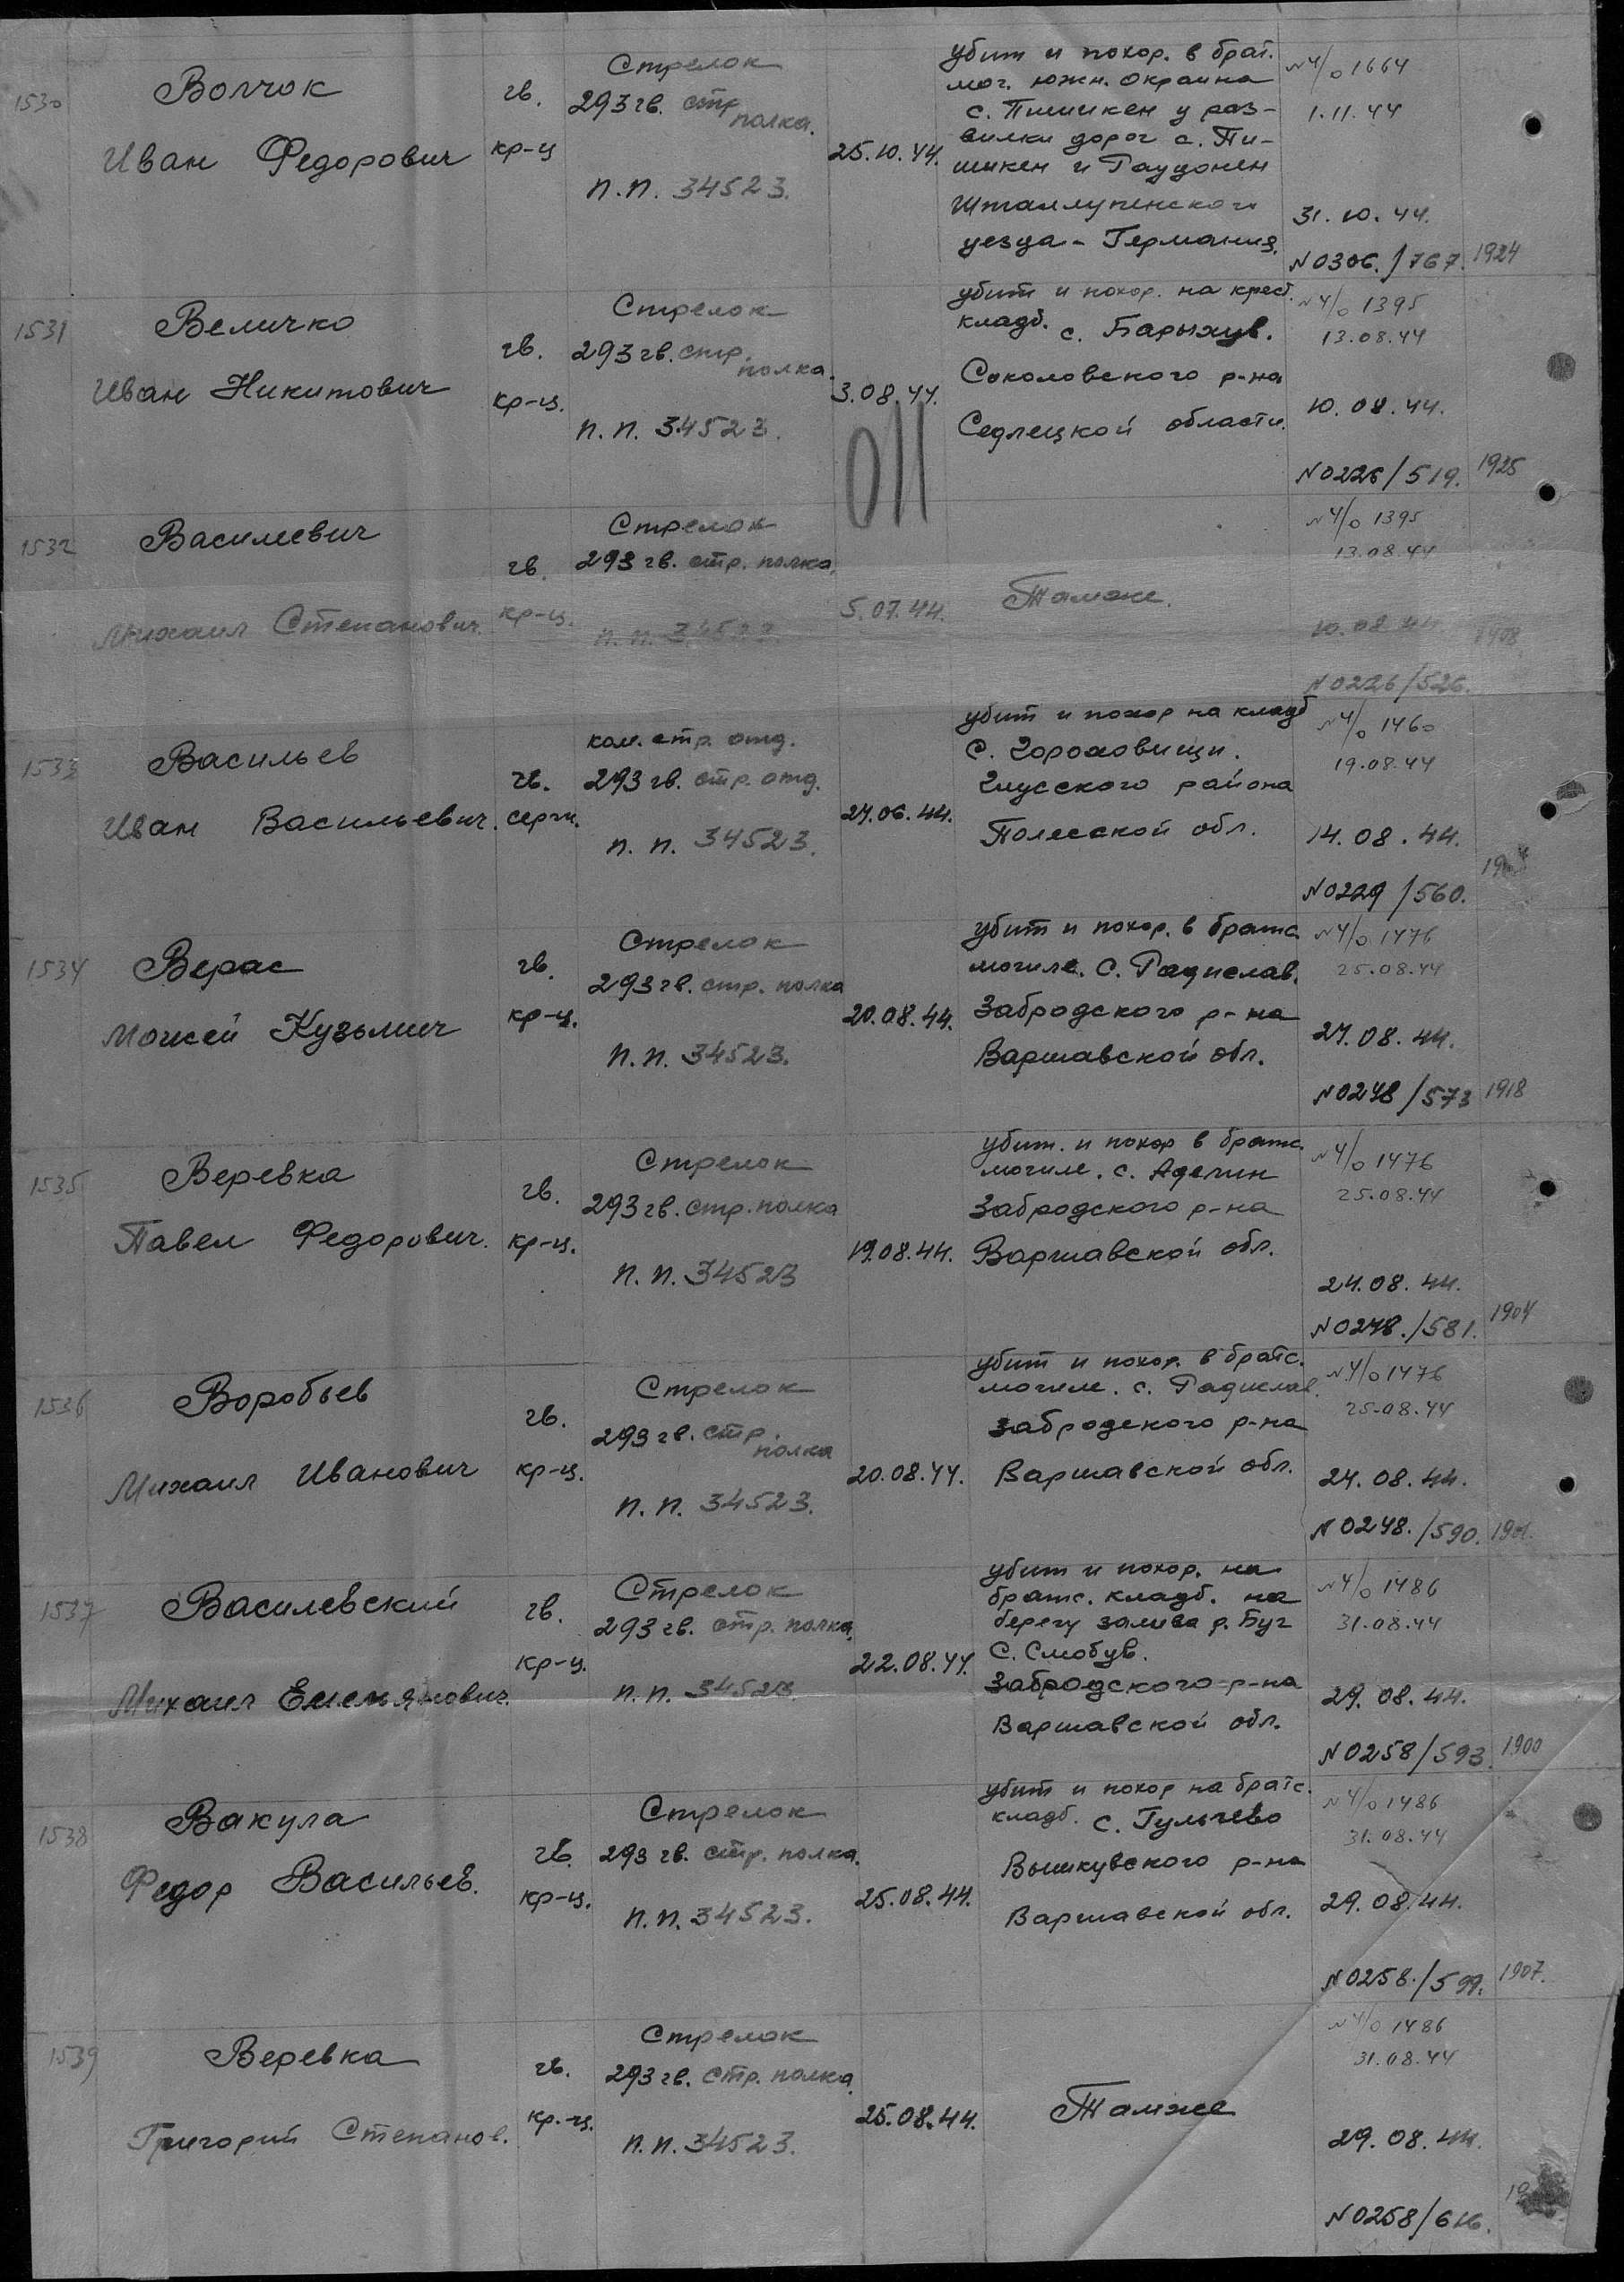 1530
Волчок
Иван Федорович
гв.
кр-ц
Стрелок
293 гв. стр
полка.
п.п. 34523.
25.10.44.
убит и похор. в брат.
мог. южн. окраина
с. Пишикен у раз-
вилки дорог с. Пи-
шикен и Гаудонен
Шталлупенского
уезда - Германия.
№ч/о 1664
1.11.44
31.10.44.
№0306./767.
1924
1531
Величко
Иван Никитович
гв.
кр-ц.
Стрелок
293 гв. стр.
полка.
п.п. 34523.
3.08.44.
011
убит и похор. на крест.
кладб. с. Барыхув.
Соколовского р-на
Седлецкой области.
№ч/о 1395
13.08.44
10.08.44.
№0226/519.
1925
1532
Василевич
Михаил Степанович.
гв.
кр-ц.
Стрелок
293 гв. стр. полка.
п.п. 34523.
5.07.44.
Тамже.
№ч/о 1395
13.08.44
10.08.44
№0226/526.
1908
1533
Васильев
Иван Васильевич.
гв.
серж.
ком. стр. отд.
293 гв. стр. отд.
п.п. 34523.
24.06.44.
убит и похор на кладб
с. Гороховищи.
Глусского района
Полесской обл.
№ч/о 1460
19.08.44
14.08.44.
№0229/560.
1534
Верас
Моисей Кузьмич
гв.
кр-ц.
Стрелок
293 гв. стр. полка
п.п. 34523.
20.08.44.
убит и похор. в братс.
могиле. с. Радислав.
Забродского р-на
Варшавской обл.
№ч/о 1476
25.08.44
24.08.44.
№0248/573
1918
1535
Веревка
Павел Федорович.
гв.
кр-ц.
Стрелок
293 гв. стр. полка
п.п. 34523
19.08.44.
убит. и похор в братс.
могиле. с. Аделин
Забродского р-на
Варшавской обл.
№ч/о 1476
25.08.44
24.08.44.
№0248./581.
1904
1536
Воробьев
Михаил Иванович
гв.
кр-ц.
Стрелок
293 гв. стр.
полка
п.п. 34523.
20.08.44.
убит и похор. в братс.
могиле. с. Радислав.
забродского р-на
Варшавской обл.
№ч/о 1476
25.08.44
24.08.44.
№0248./590.
1537
Василевский
Михаил Емельянович.
гв.
кр-ц.
Стрелок
293 гв. стр. полка.
п.п. 34523.
22.08.44.
убит и похор. на
братс. кладб. на
берегу залива р. Буг
с. Слобув.
Забродского р-на
Варшавской обл.
№ч/о 1486
31.08.44
29.08.44.
№0258/593.
1900
1538
Вакула
Федор Васильев.
гв.
кр-ц.
Стрелок
293 гв. стр. полка.
п.п. 34523.
25.08.44.
убит и похор на братс.
кладб. с. Гульчево
Вышкувского р-на
Варшавской обл.
№ч/о 1486
31.08.44
29.08.44.
№0258./599.
1907.
1539
Веревка
Григорий Степанов.
гв.
кр-ц.
Стрелок
293 гв. стр. полка.
п.п. 34523.
25.08.44.
Тамже
№ч/о 1486
31.08.44
29.08.44.
№0258/616.